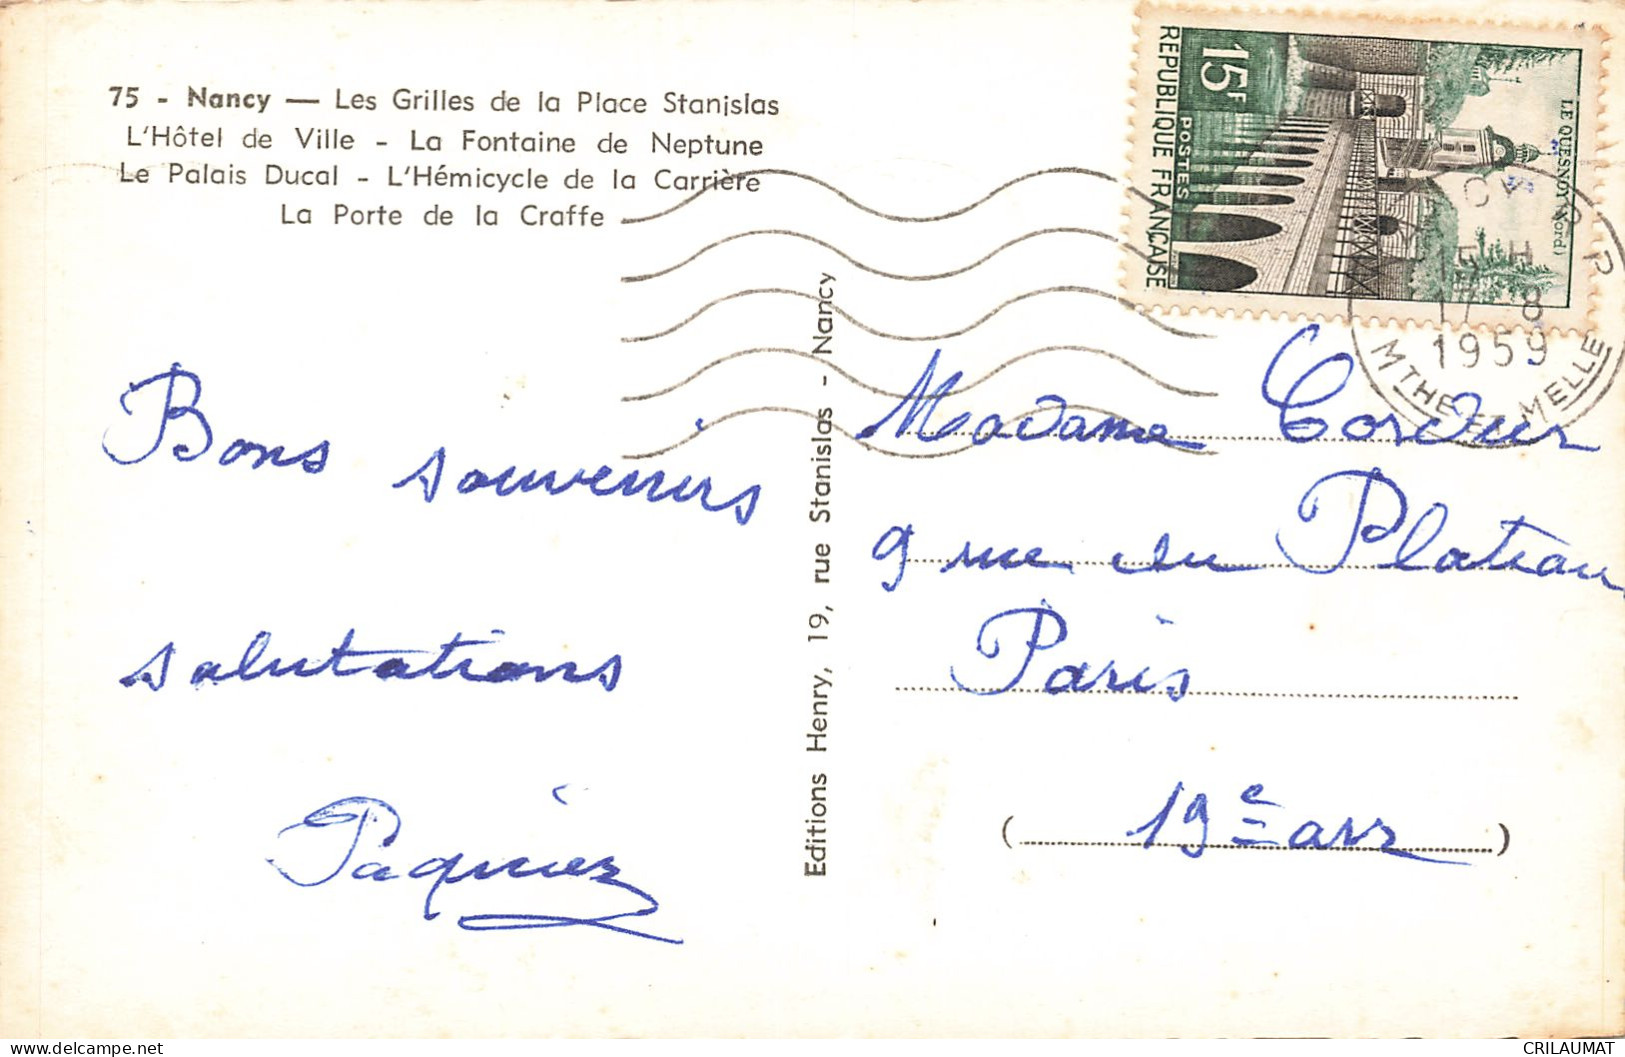 75 - Nancy — Les Grilles de la Place Stanislas
L'Hôtel de Ville - La Fontaine de Neptune
Le Palais Ducal - L'Hémicycle de la Carrière
La Porte de la Craffe
REPUBLIQUE FRANÇAISE
15F
POSTES
LE QUESNOY (Nord)
NCY R.P
15 H
17-8
1959
MTHE ET MELLE
Bons souvenirs
salutations
Editions Henry, 19, rue Stanislas - Nancy
Madame Cordur
9 rue du Plateau
Paris
(19e arr)
CRILAUMAT